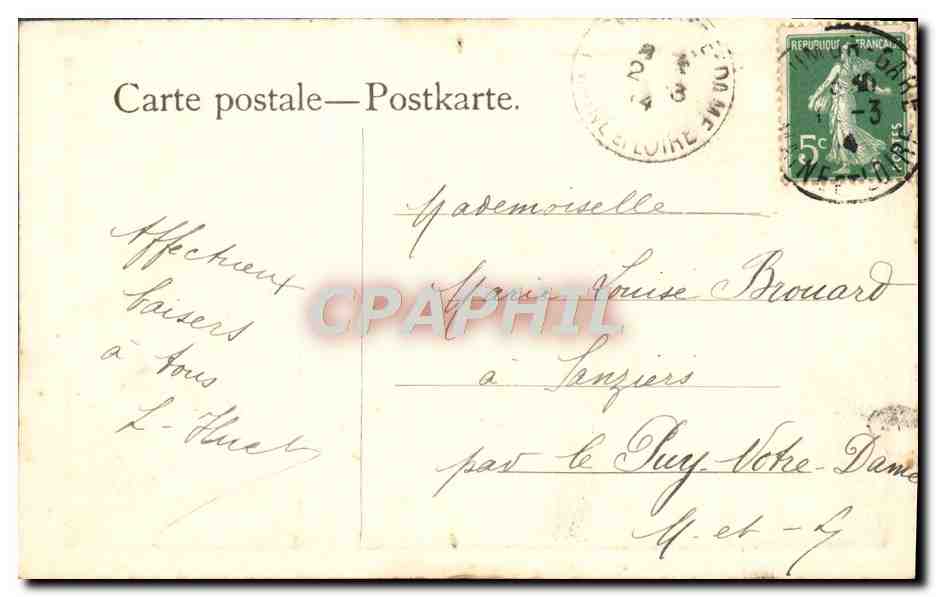 Carte postale—Postkarte.
DAME
ET LOIRE
2 3
4
REPUBLIQUE FRANÇAISE
5c
POSTES
GARE
-3
MAINE ET LOIRE
Affectueux
baisers
à tous
L. Huet
Mademoiselle
Marie Louise Brouard
à Sanziers
par le Puy-Notre-Dame
M-et-L
CPAPHIL